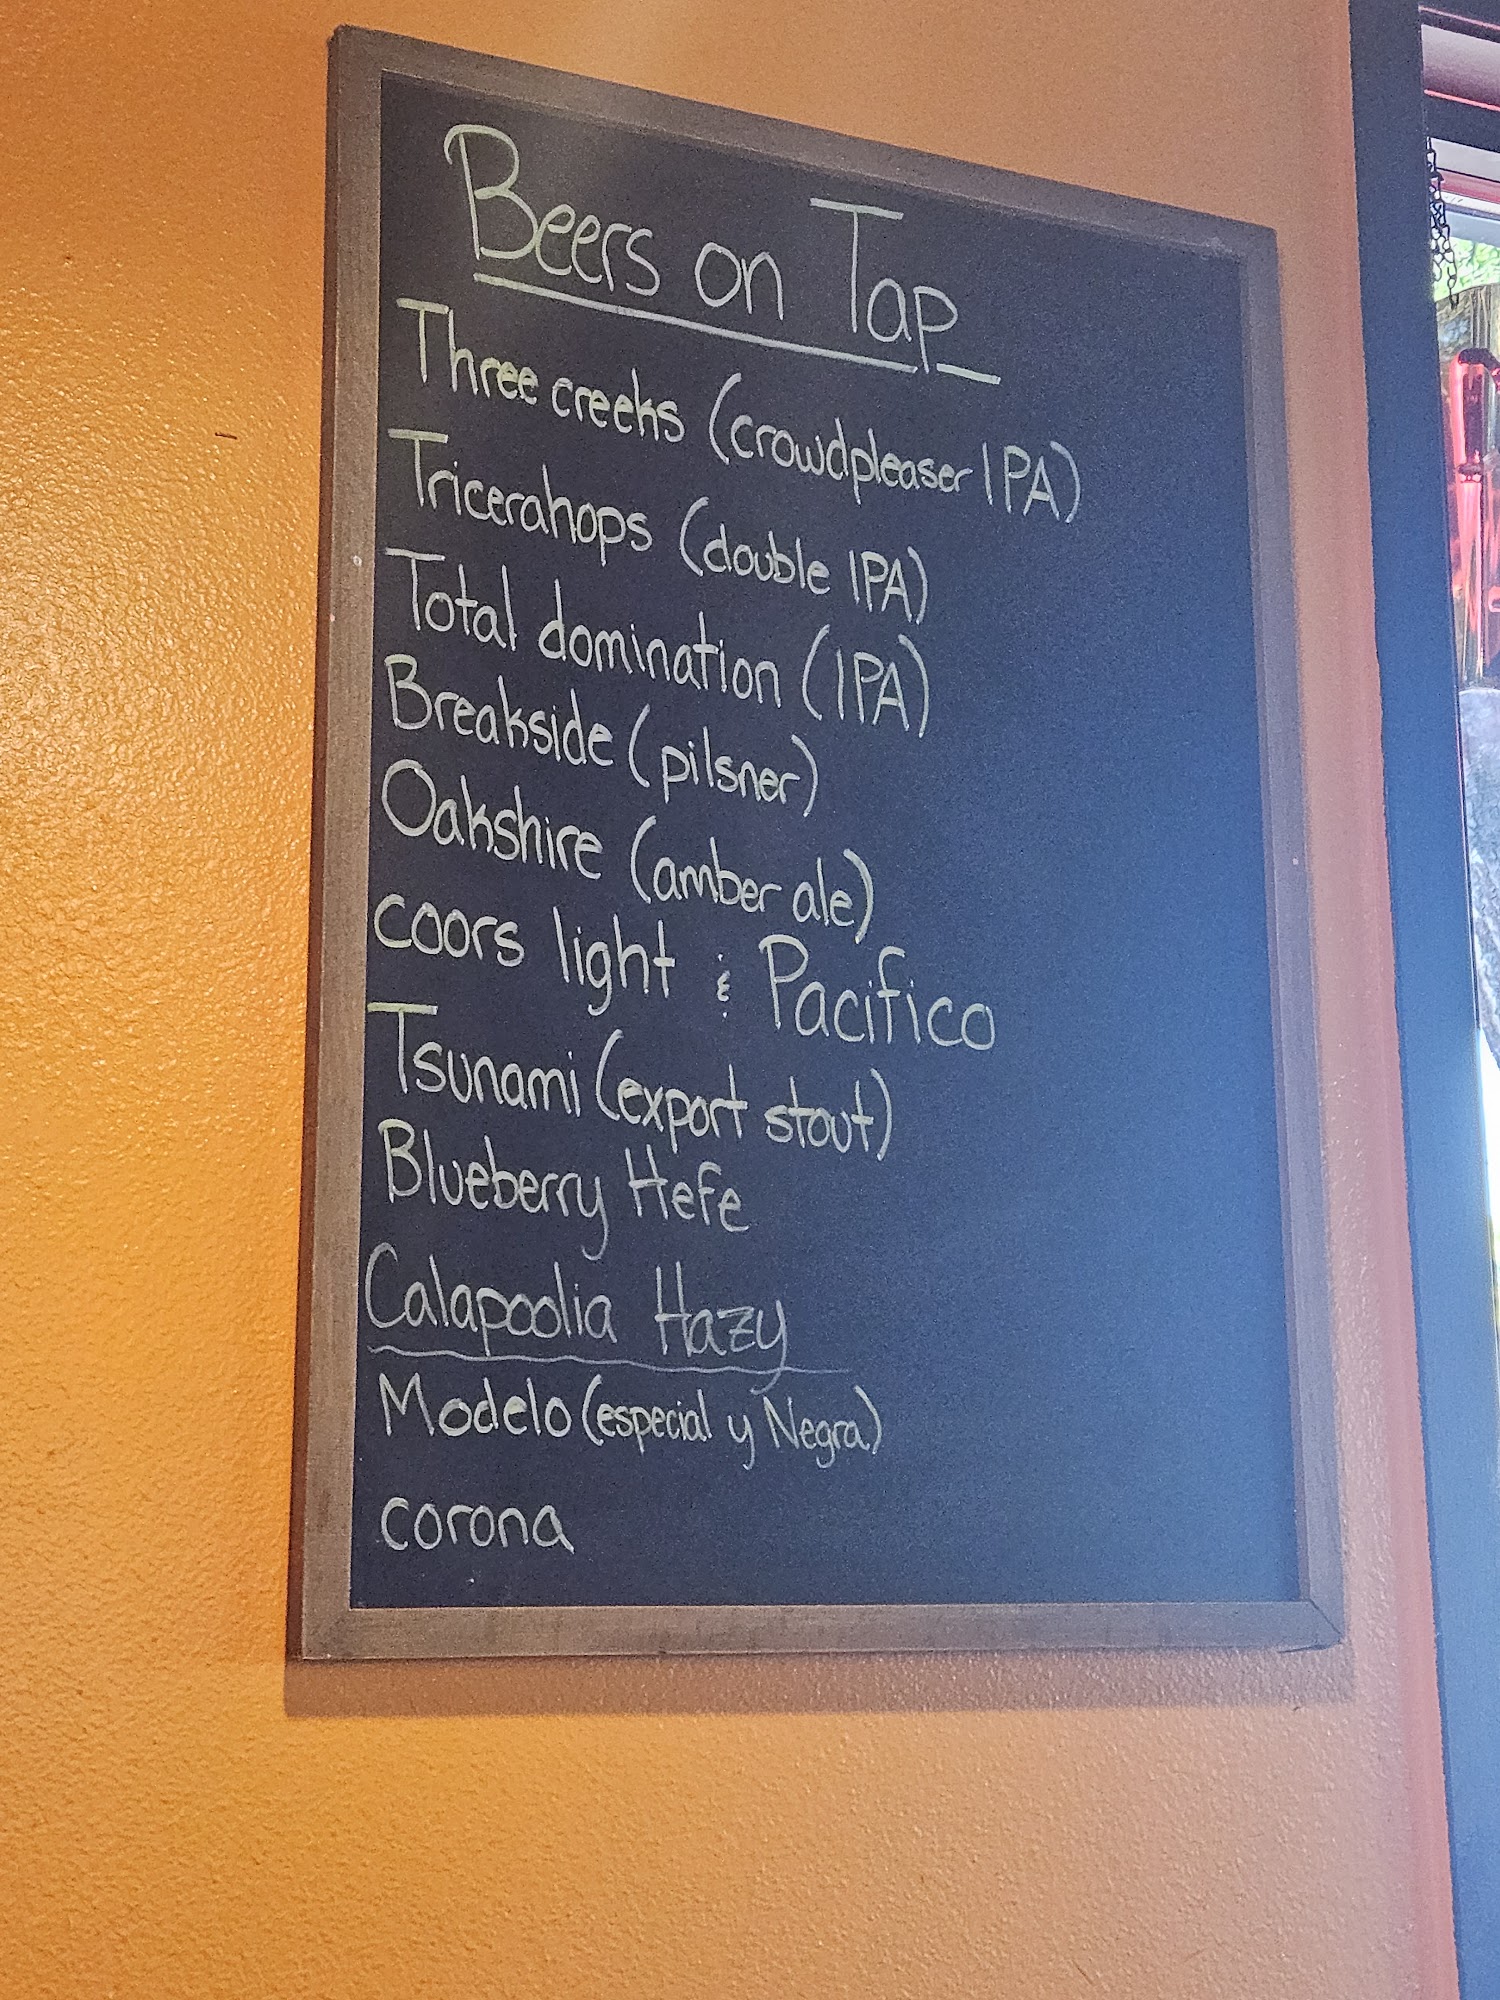 Beers on Tap
Three creeks (crowdpleaser IPA)
Tricerahops (double IPA)
Total domination (IPA)
Breakside (pilsner)
Oakshire (amber ale)
coors light & Pacifico
Tsunami (export stout)
Blueberry Hefe
Calapoolia Hazy
Modelo (especial y Negra)
corona